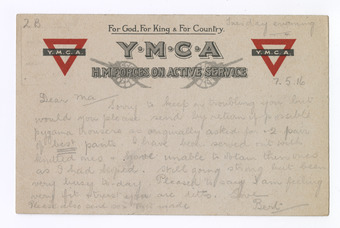 2B
For God, For King & For Country.
Tuesday evening
Y.M.C.A
Y.M.C.A
Y.M.C.A
H.M. FORCES ON ACTIVE SERVICE
7.5.16
Dear Ma Sorry to keep on troubling you but
would you please send by return if possible
pyjama trousers as originally asked for - 2 pairs
of best pants. I have been served out with
knitted ones & unable to obtain thin ones
as I had hoped. Still going strong but been
very busy today. Please I am feeling
very fit & trust you are ditto. Love
Please also
Bert